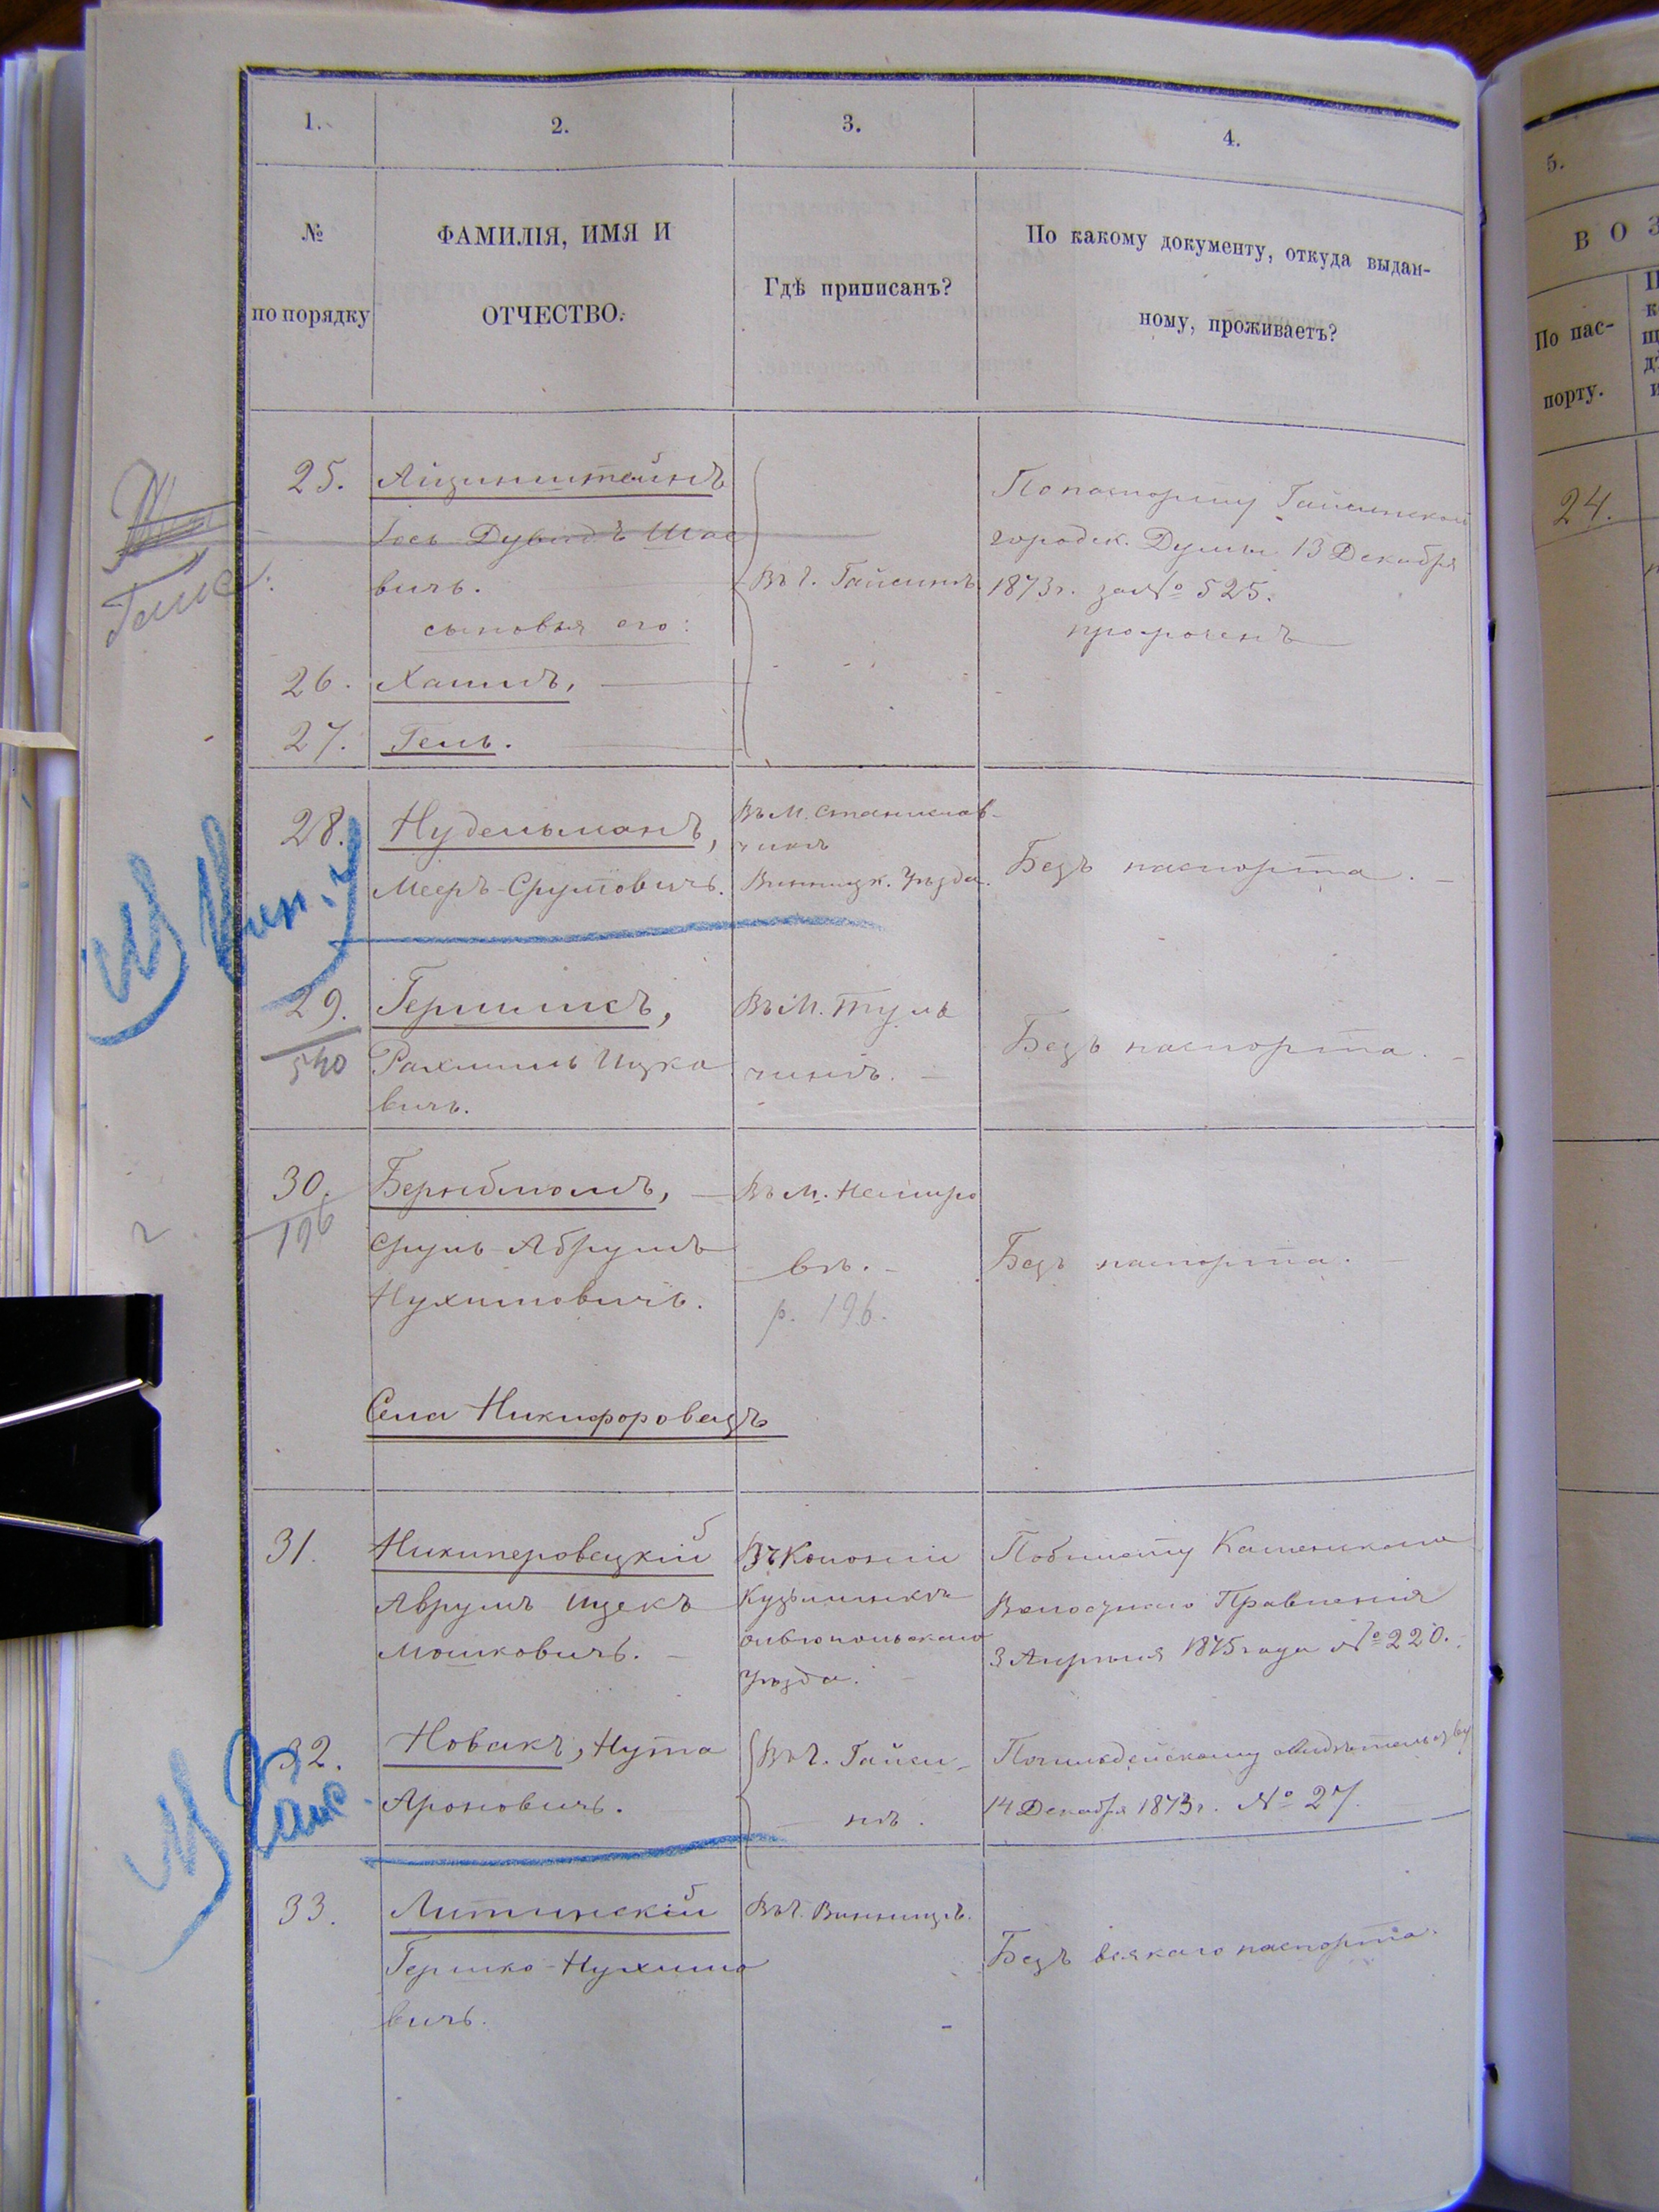 1.
2.
3.
4.
5.
№
по порядку
ФАМИЛІЯ, ИМЯ И
ОТЧЕСТВО.
Гдѣ приписанъ?
По какому документу, откуда выдан-
ному, проживаетъ?
В О З
По пас-
порту.
24.
25.
Айзинштейнъ
Іось Дувидъ
вичъ.
Въ г. Гайсинѣ.
По паспорту Гайсинской
городск. Думы 13 Декабря
1873 г. за № 525.
просроченъ
сыновья его:
26.
Хаимъ,
27.
Гель.
Гайс.
28.
Нудельманъ,
Мееръ-Срулёвичъ.
Въ м. Станислав-
чикѣ
Винницк. Уѣзда.
Безъ паспорта.
Вин. у
29.
540
Гершликъ,
Рахмиль Ицко
вичъ.
Въ м. Туль
чинѣ.
Безъ паспорта.
30.
196
Бернблюмъ,
Сруль-Абрумъ
Нухимовичъ.
Въ м. Немиро
вѣ.
р. 196.
Безъ паспорта.
Села Никифоровецъ
31.
Никиперовецкій
Аврумъ Ицекъ
Мошковичъ.
Въ Колоніи
Кузьминкѣ
Ольвіопольскаго
Уѣзда.
По билету
Волостнаго Правленія
3 Апрѣля 1875 года № 220.
32.
Новакъ, Нута
Ароновичъ.
Въ г. Гайси-
нѣ.
По полицейскому свидѣтельству
14 Декабря 1873 г. № 27.
Гайс.
33.
Литинскій
Гершко-Нухимо
вичъ.
Въ г. Винницѣ.
Безъ всякаго паспорта.